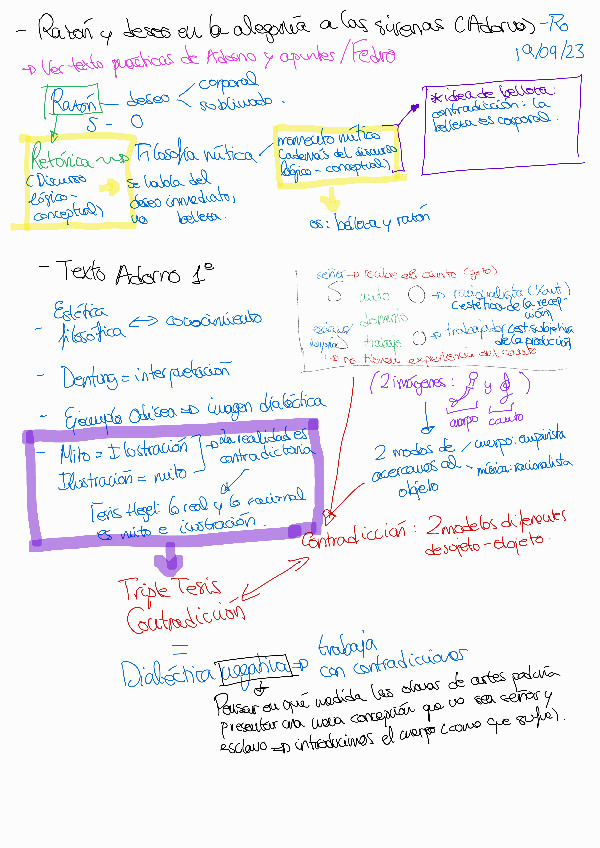 - Razón y deseo en la alegoría a las sirenas (Adorno) - Ro
19/09/23
→ Ver texto practicas de Adorno y apuntes / Fedro
Razón — deseo < corporal
sublimado.
S - O
Retórica → Filosofía mítica
(Discurso
lógico-
conceptual)
se habla del
deseo inmediato,
no belleza.
momento mítico
(además del discurso
lógico-conceptual)
es: belleza y razón
* idea de belleza:
contradicción: la
belleza es corporal.
- Texto Adorno 1º
- Estética
filosófica ↔ conocimiento
- Deutung = interpretación
- Ejemplo Odisea ⇒ imagen dialéctica
- Mito = Ilustración
Ilustración = mito
→ la realidad es
contradictoria
Tesis Hegel: lo real y lo racional
es mito e ilustración.
señor → recibe el canto (goto)
S canto O → racionalista (Kant)
(estética de la recep-
ción)
dominio
esclavo trabajo O → trabajador (est. subjetiva
de la producción)
→ no tienen experiencia del canto
(2 imágenes: y )
cuerpo canto
2 modos de
acercarnos al
objeto
cuerpo: empirista
música: racionalista
Contradicción: 2 modelos diferentes
de sujeto-objeto.
Triple Tesis
Contradicción
=
Dialéctica negativa ⇒ trabaja
con contradicciones
Pensar en qué medida las obras de artes podría
presentar una nueva concepción que no sea señor y
esclavo ⇒ introducimos el cuerpo (como que sufre).